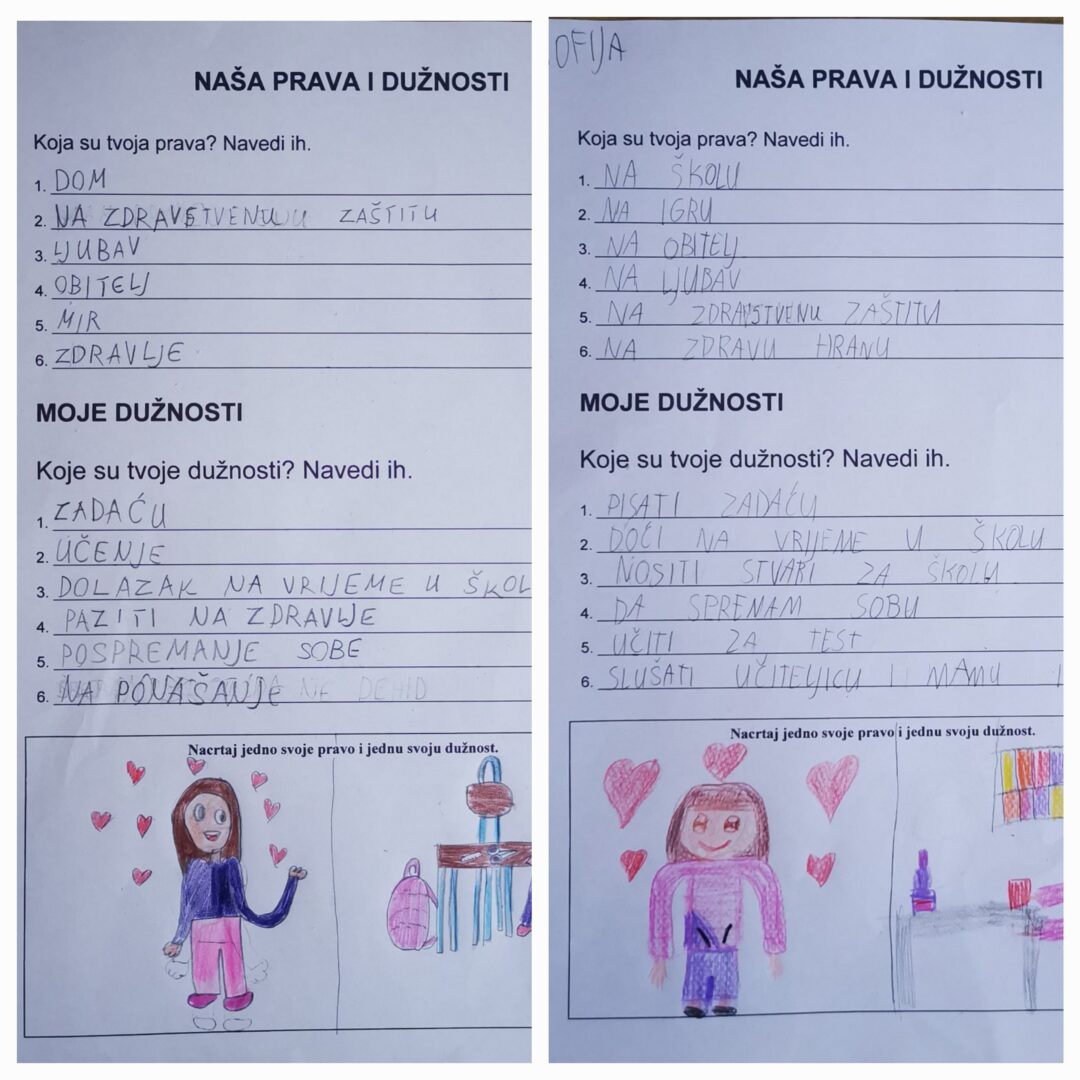 NAŠA PRAVA I DUŽNOSTI
Koja su tvoja prava? Navedi ih.
1. DOM
2. NA ZDRAVSTVENU ZAŠTITU
3. LJUBAV
4. OBITELJ
5. MIR
6. ZDRAVLJE
MOJE DUŽNOSTI
Koje su tvoje dužnosti? Navedi ih.
1. ZADAĆU
2. UČENJE
3. DOLAZAK NA VRIJEME U ŠKOL
4. PAZITI NA ZDRAVLJE
5. POSPREMANJE SOBE
6. NA PONAŠANJE
Nacrtaj jedno svoje pravo i jednu svoju dužnost.
OFIJA
NAŠA PRAVA I DUŽNOSTI
Koja su tvoja prava? Navedi ih.
1. NA ŠKOLU
2. NA IGRU
3. NA OBITELJ
4. NA LJUBAV
5. NA ZDRAVSTVENU ZAŠTITU
6. NA ZDRAVU HRANU
MOJE DUŽNOSTI
Koje su tvoje dužnosti? Navedi ih.
1. PISATI ZADAĆU
2. DOĆI NA VRIJEME U ŠKOLU
3. NOSITI STVARI ZA ŠKOLU
4. DA SPRENAM SOBU
5. UČITI ZA TEST
6. SLUŠATI UČITELJICU I MAMU I
Nacrtaj jedno svoje pravo i jednu svoju dužnost.